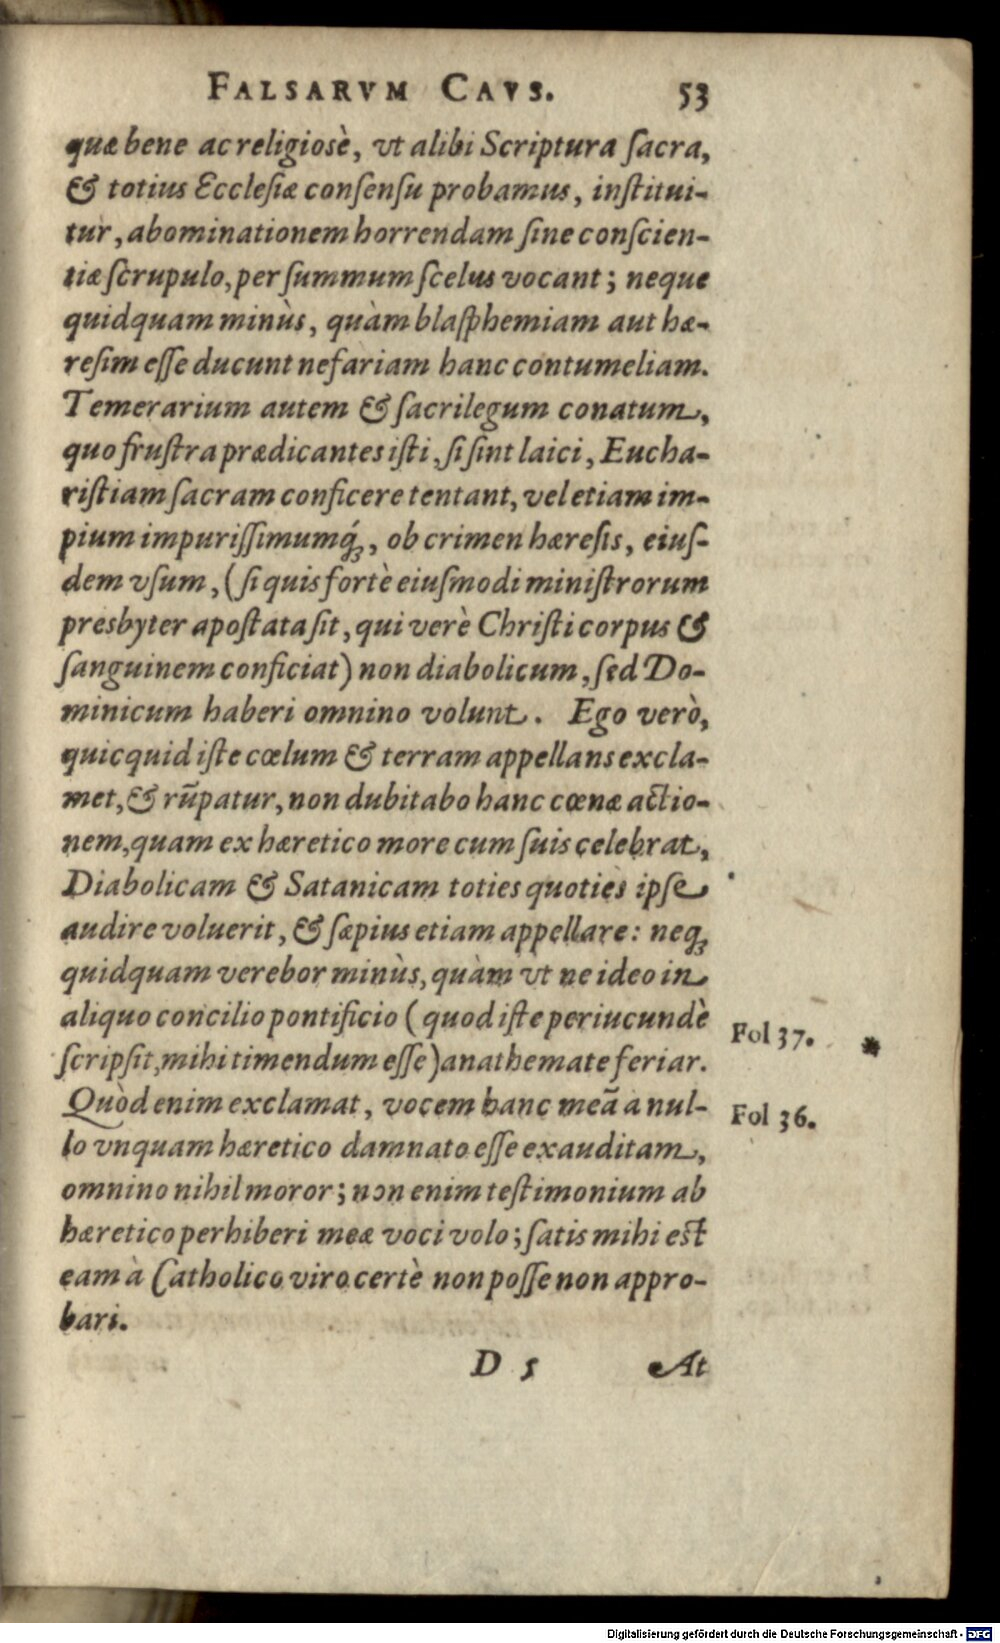 FALSARVM CAVS. 53
quæ bene ac religiosè, vt alibi Scriptura ſacra,
& totius Eccleſiæ conſenſu probamus, inſtitui-
tur, abominationem horrendam ſine conſcien-
tiæ ſcrupulo, per ſummum ſcelus vocant; neque
quidquam minùs, quàm blaſphemiam aut hæ-
reſim eſſe ducunt nefariam hanc contumeliam.
Temerarium autem & ſacrilegum conatum,
quo fruſtra prædicantes iſti, ſi ſint laici, Eucha-
riſtiam ſacram conficere tentant, vel etiam im-
pium impuriſſimumq́ꝫ, ob crimen hæreſis, eiuſ-
dem vſum, (ſi quis fortè eiuſmodi miniſtrorum
presbyter apoſtata ſit, qui verè Chriſti corpus &
ſanguinem conficiat) non diabolicum, ſed Do-
minicum haberi omnino volunt. Ego verò,
quicquid iſte cœlum & terram appellans excla-
met, & rūpatur, non dubitabo hanc cœnæ actio-
nem, quam ex hæretico more cum ſuis celebrat,
Diabolicam & Satanicam toties quoties ipſe
audire voluerit, & ſæpius etiam appellare: neqꝫ
quidquam verebor minùs, quàm vt ne ideo in
aliquo concilio pontificio (quod iſte periucundè
ſcripſit, mihi timendum eſſe) anathemate feriar.
Fol 37. *
Quòd enim exclamat, vocem hanc meā a nul-
Fol 36.
lo vnquam hæretico damnato eſſe exauditam,
omnino nihil moror; non enim teſtimonium ab
hæretico perhiberi meæ voci volo; ſatis mihi eſt
eam à Catholico viro certè non poſſe non appro-
bari.
D 5 At
Digitalisierung gefördert durch die Deutsche Forschungsgemeinschaft - DFG